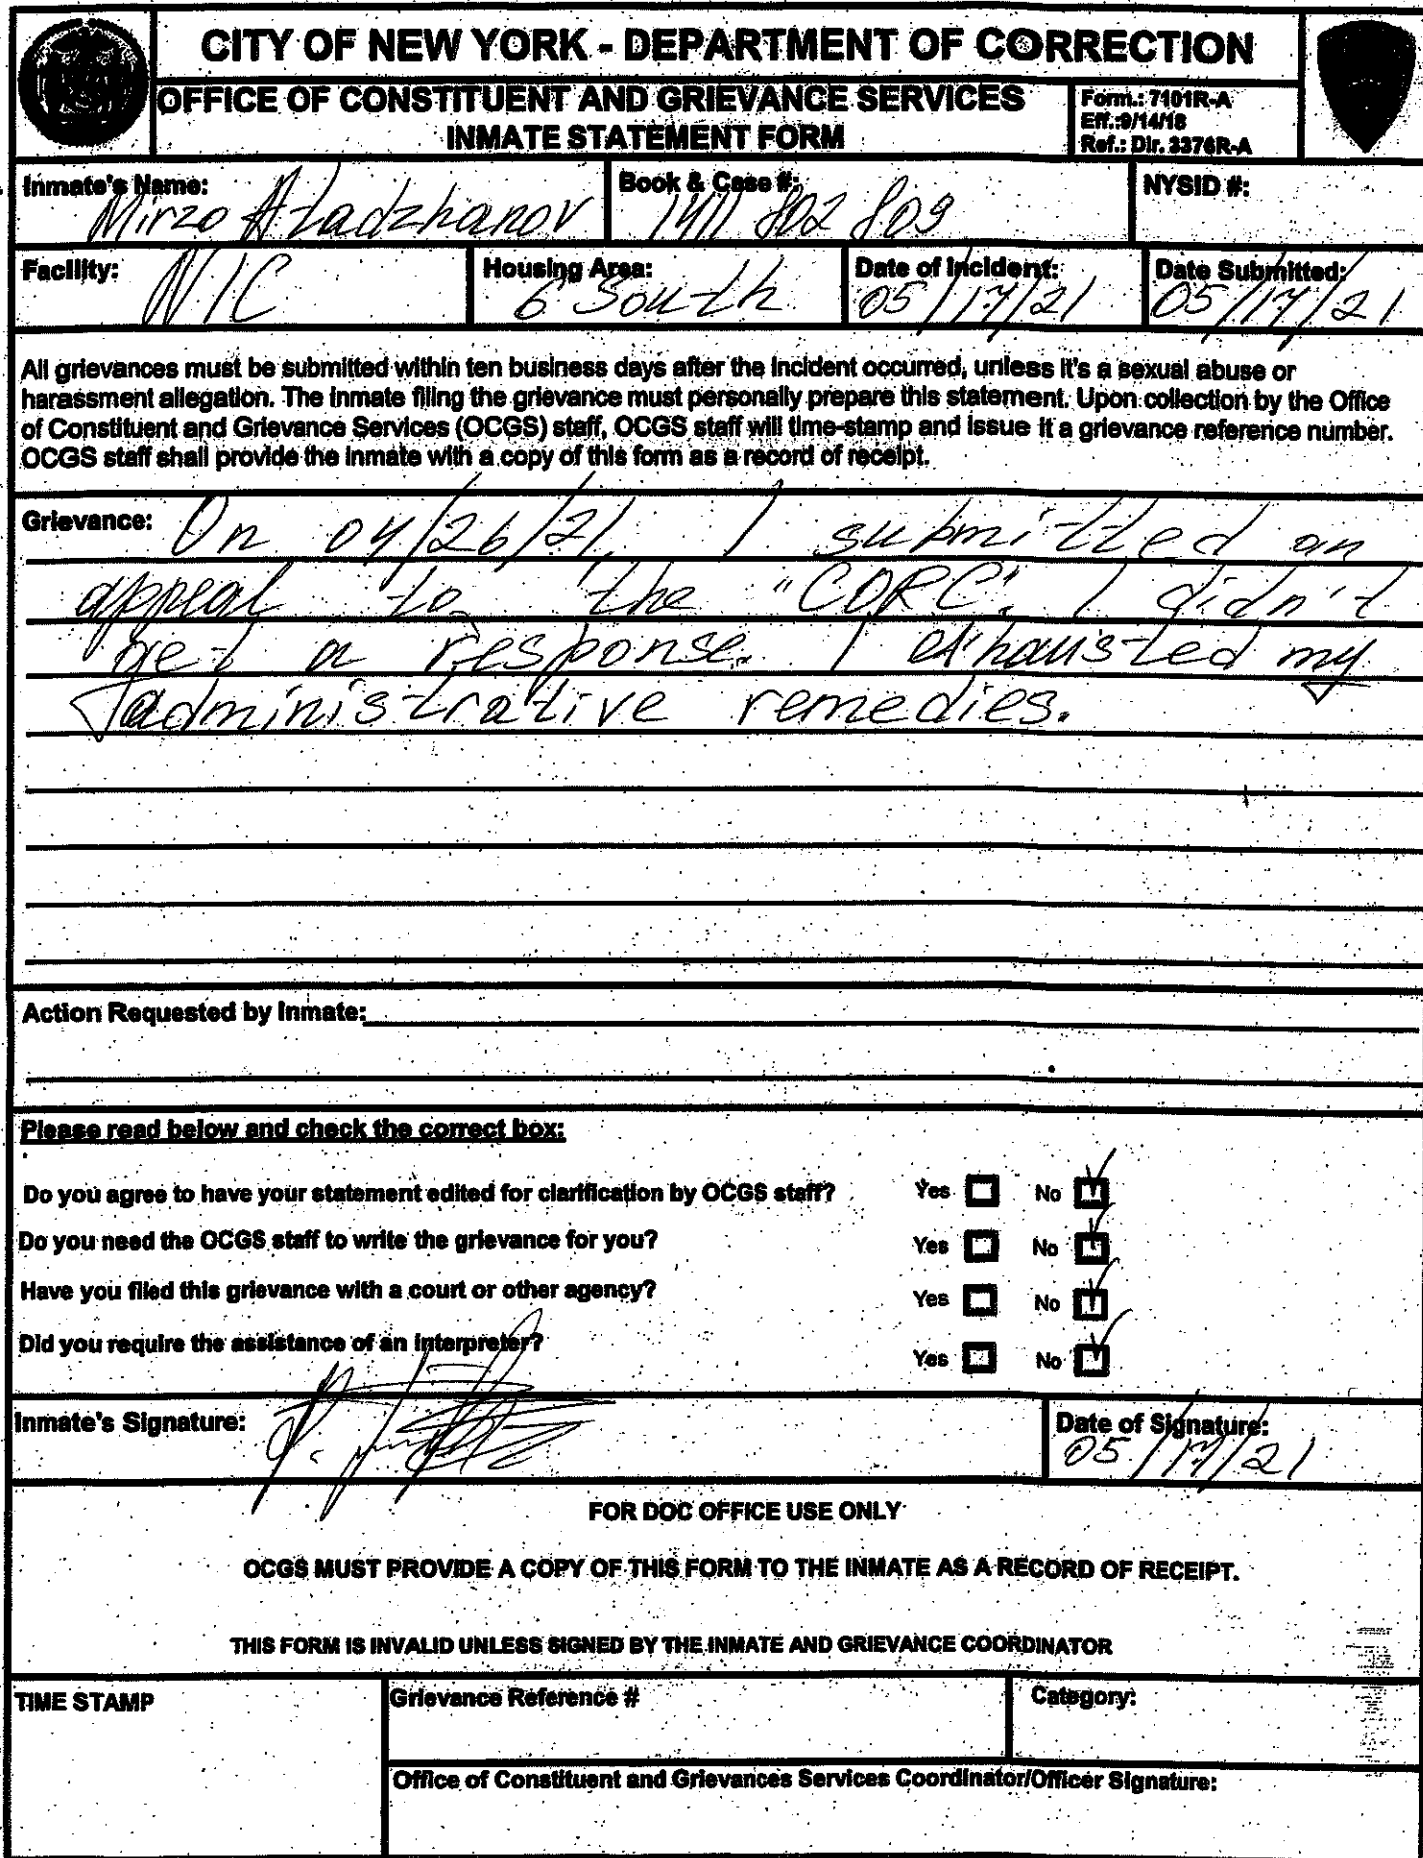 CITY OF NEW YORK - DEPARTMENT OF CORRECTION
OFFICE OF CONSTITUENT AND GRIEVANCE SERVICES
INMATE STATEMENT FORM
Form.: 7101R-A
Eff.:9/14/18
Ref.: Dir. 3376R-A
Inmate's Name: Mirzo Atadzhanov
Book & Case #: 1411 802 809
NYSID #:
Facility: NIC
Housing Area: 6 South
Date of Incident: 05/17/21
Date Submitted: 05/17/21
All grievances must be submitted within ten business days after the incident occurred, unless it's a sexual abuse or
harassment allegation. The inmate filing the grievance must personally prepare this statement. Upon collection by the Office
of Constituent and Grievance Services (OCGS) staff, OCGS staff will time-stamp and issue it a grievance reference number.
OCGS staff shall provide the inmate with a copy of this form as a record of receipt.
Grievance: On 04/26/21. I submitted an
appeal to the "CORC". I didn't
get a response. I exhausted my
administrative remedies.
Action Requested by Inmate:
Please read below and check the correct box:
Do you agree to have your statement edited for clarification by OCGS staff? Yes No
Do you need the OCGS staff to write the grievance for you? Yes No
Have you filed this grievance with a court or other agency? Yes No
Did you require the assistance of an interpreter? Yes No
Inmate's Signature:
Date of Signature: 05/17/21
FOR DOC OFFICE USE ONLY
OCGS MUST PROVIDE A COPY OF THIS FORM TO THE INMATE AS A RECORD OF RECEIPT.
THIS FORM IS INVALID UNLESS SIGNED BY THE INMATE AND GRIEVANCE COORDINATOR
TIME STAMP
Grievance Reference #
Category:
Office of Constituent and Grievances Services Coordinator/Officer Signature: